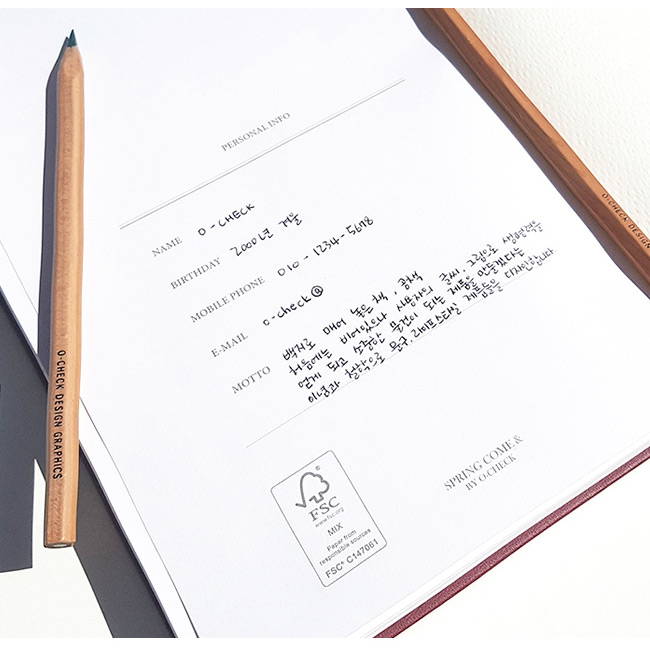 PERSONAL INFO
NAME O-CHECK
BIRTHDAY 2000년 겨울
MOBILE PHONE 010-1234-5678
E-MAIL o-check@
MOTTO 백지로 매어 놓은 책, 공책
처음에는 비어있으나 사용자의 글씨, 그림으로 생명력을
얻게 되고 소중한 물건이 되는 제품을 만들겠다는
이념과 철학으로 문구, 라이프스타일 제품들을 디자인합니다
FSC
www.fsc.org
MIX
Paper from
responsible sources
FSC® C147061
SPRING COME &
BY O-CHECK
O-CHECK DESIGN GRAPHICS
O-CHECK DESIGN